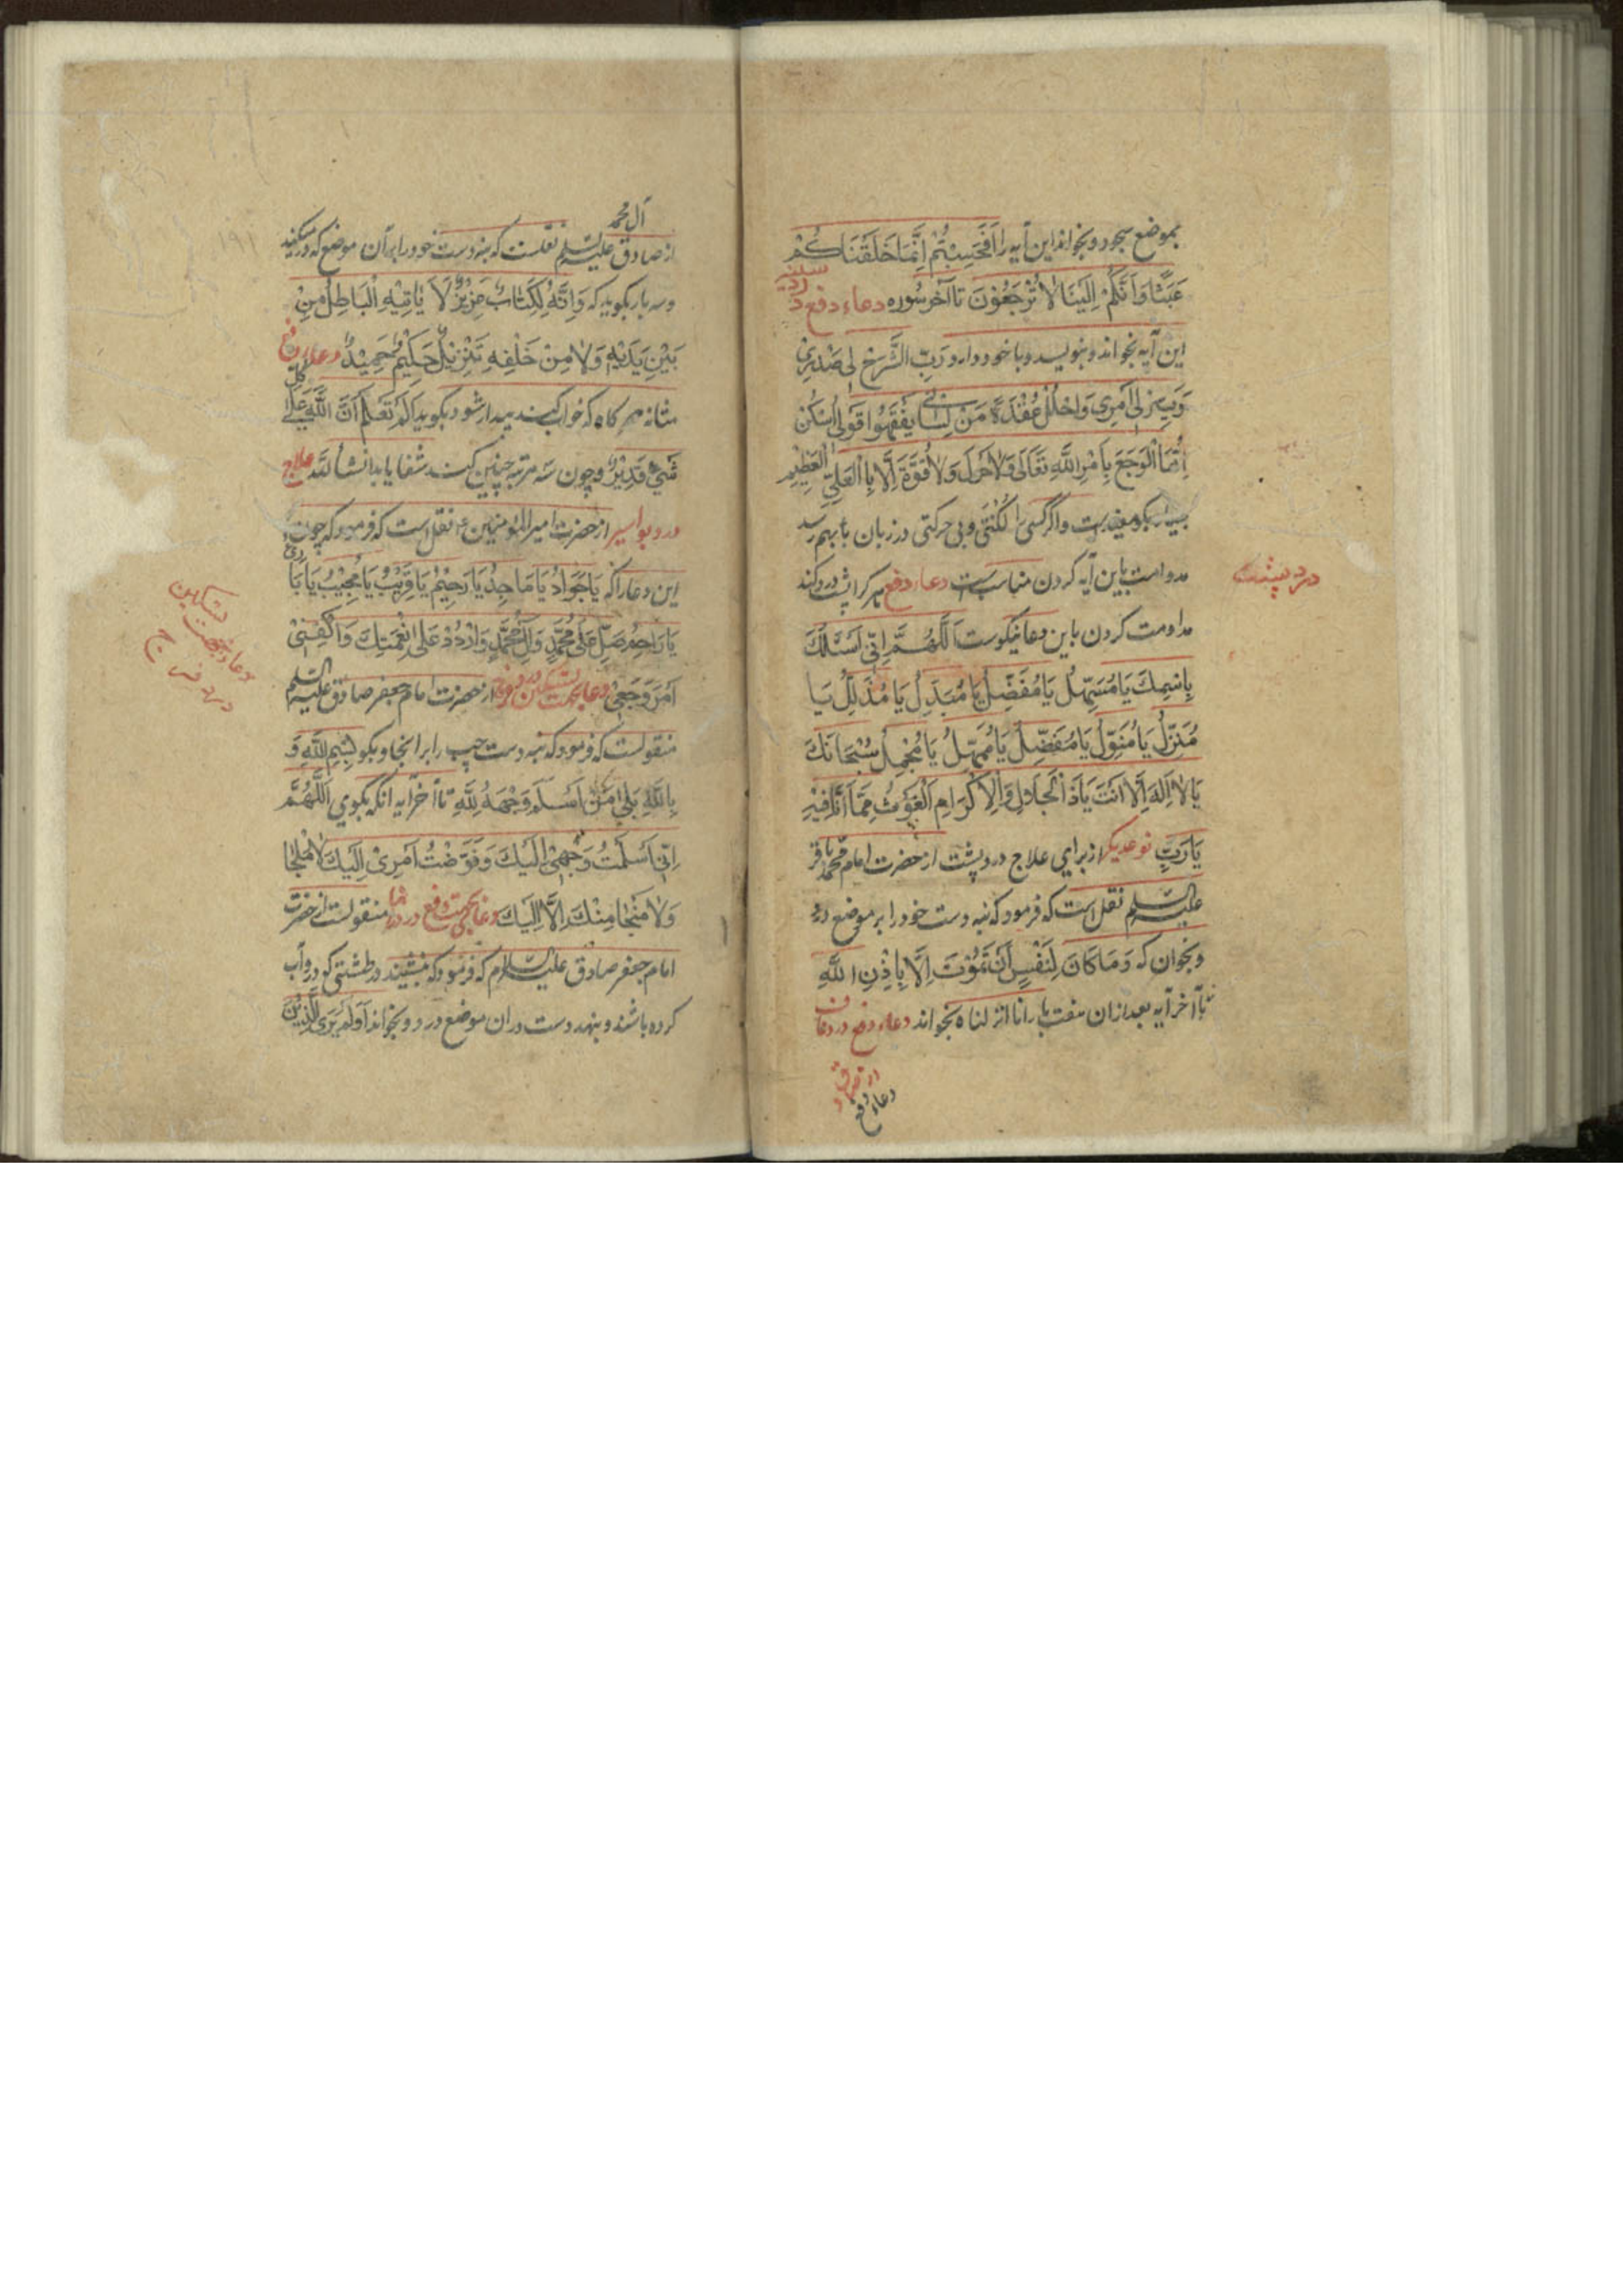 بموضع سجود و بخواند این آیه را اَفَحَسِبْتُمْ اَنَّمَا خَلَقْنَاكُمْ
عَبَثًا وَاَنَّكُمْ اِلَیْنَا لَا تُرْجَعُوْنَ تا آخر سُوره دعاء دفع درد سینه
این آیه بخواند و بنویسد و با خود دارد رَبِّ اشَّرَحْ لی صَدْرِیْ
وَیَسِّرْ لی اَمْرِی وَاحْلُلْ عُقْدَةً مَنْ لِسَانی یَفْقَهُوا قَولی اُسْكُنْ
اَیُّهَا الْوَجَعُ بِاَمْرِ اللَّهِ تَعَالَی وَلَا حَوْلَ وَلَا قُوَّةَ اِلَّا بِاالْعَلِیِّ الْعَظِیْمِ
بسیار بگو مفیدست و اگر کسی را لُکْنَتی و بی حرکتی در زبان بهم رسد
مداومت باین آیه کردن مناسبست دعاء دفع هر کرا پشت درد کند
درد پیشت
مداومت کردن باین دعا نیکوست اَللَّهُمَّ اِنِّی اَسْئَلُكَ
بِاسْمِكَ یَا مُسَهِّلُ یَا مُفَضِّلُ یَا مُبَدِّلُ یَا مُذَلِّلُ یَا
مُنَزِّلُ یَا مُنَوِّلُ یَا مُفَضِّلُ یَا مُمَهِّلُ یَا مُجْمِلُ سُبْحَانَكَ
یَا لَا اِلَهَ اِلَّا اَنْتَ یَا ذَاالْجَلَالِ وَالْاِكْرَامِ الْغَوْثُ مِمَّا اَنَا فِیْهِ
یَارَبِّ نوعدیگر از برای علاج درد پشت از حضرت امام محمد باقر
علیه السلم نقل است که فرمود که بنه دست خود را بر موضع درد
و بخوان که وَمَا كَانَ لِنَفْسٍ اَنْ تَمُوْتَ اِلَّا بِاِذْنِ اللَّهِ
تا آخر آیه بعد از ان هفت بار انا انزلناه بخواند دعاء دفع درد
دعاء دفع
آل محمد
از صادق علیه السلم نقلست که بنه دست خود را بر آن موضع که درد میکند
و سه بار بگوید که وَاِنَّهُ لَكِتَابٌ عَزِیْزٌ لَا یَاْتِیْهِ الْبَاطِلُ مِنْ
بَیْنِ یَدَیْهِ وَلَا مِنْ خَلْفِهِ تَنْزِیْلٌ حَكِیْمٌ حَمِیْدٌ دعاء دفع
مثانه هر کاه که خواب کند بیدار شود بگوید اَلَمْ تَعْلَمْ اَنَّ اللَّهَ عَلَی كُلِّ
شَیْءٍ قَدِیْرٌ و چون سه مرتبه چنین کند شفا یابد انشأ الله علاج
درد بواسیر از حضرت امیر المؤمنین ع نقل است که فرمود که چون
این دعا را که یَا جَوَادُ یَا مَاجِدُ یَا رَحِیْمُ یَا قَرِیْبُ یَا مُجِیْبُ یَا بَارِئُ
یَا رَاحِمُ صَلِّ عَلَی مُحَمَّدٍ وَالِ مُحَمَّدٍ وَارْدُدْ عَلَی نِعْمَتِكَ وَاكْفِنِیْ
اَمْرَ وَجَعِیْ دعا بجهت تسکین درد فرج از حضرت امام جعفر صادق علیه السلم
دعا بجهت تسکین
درد فرج
منقولست که فرمود که بنه دست چپ را بر انجا و بگو بِسْمِ اللَّهِ وَ
بِاللَّهِ بَلَی مَنْ اَسْلَمَ وَجْهَهُ لِلَّهِ تا آخر آیه انکه بگوی اَللَّهُمَّ
اِنِّی اَسْلَمْتُ وَجْهِیْ اِلَیْكَ وَفَوَّضْتُ اَمْرِیْ اِلَیْكَ لَا مَلْجَا
وَلَا مَنْجَا مِنْكَ اِلَّا اِلَیْكَ دعا بجهت دفع درد منقولست از حضرت
امام جعفر صادق علیه السلام که فرمود که بنشیند در طشتی که در و آب
کرده باشند و بنهد دست در ان موضع درد و بخواند اَوَلَمْ یَرَی الَّذِیْنَ